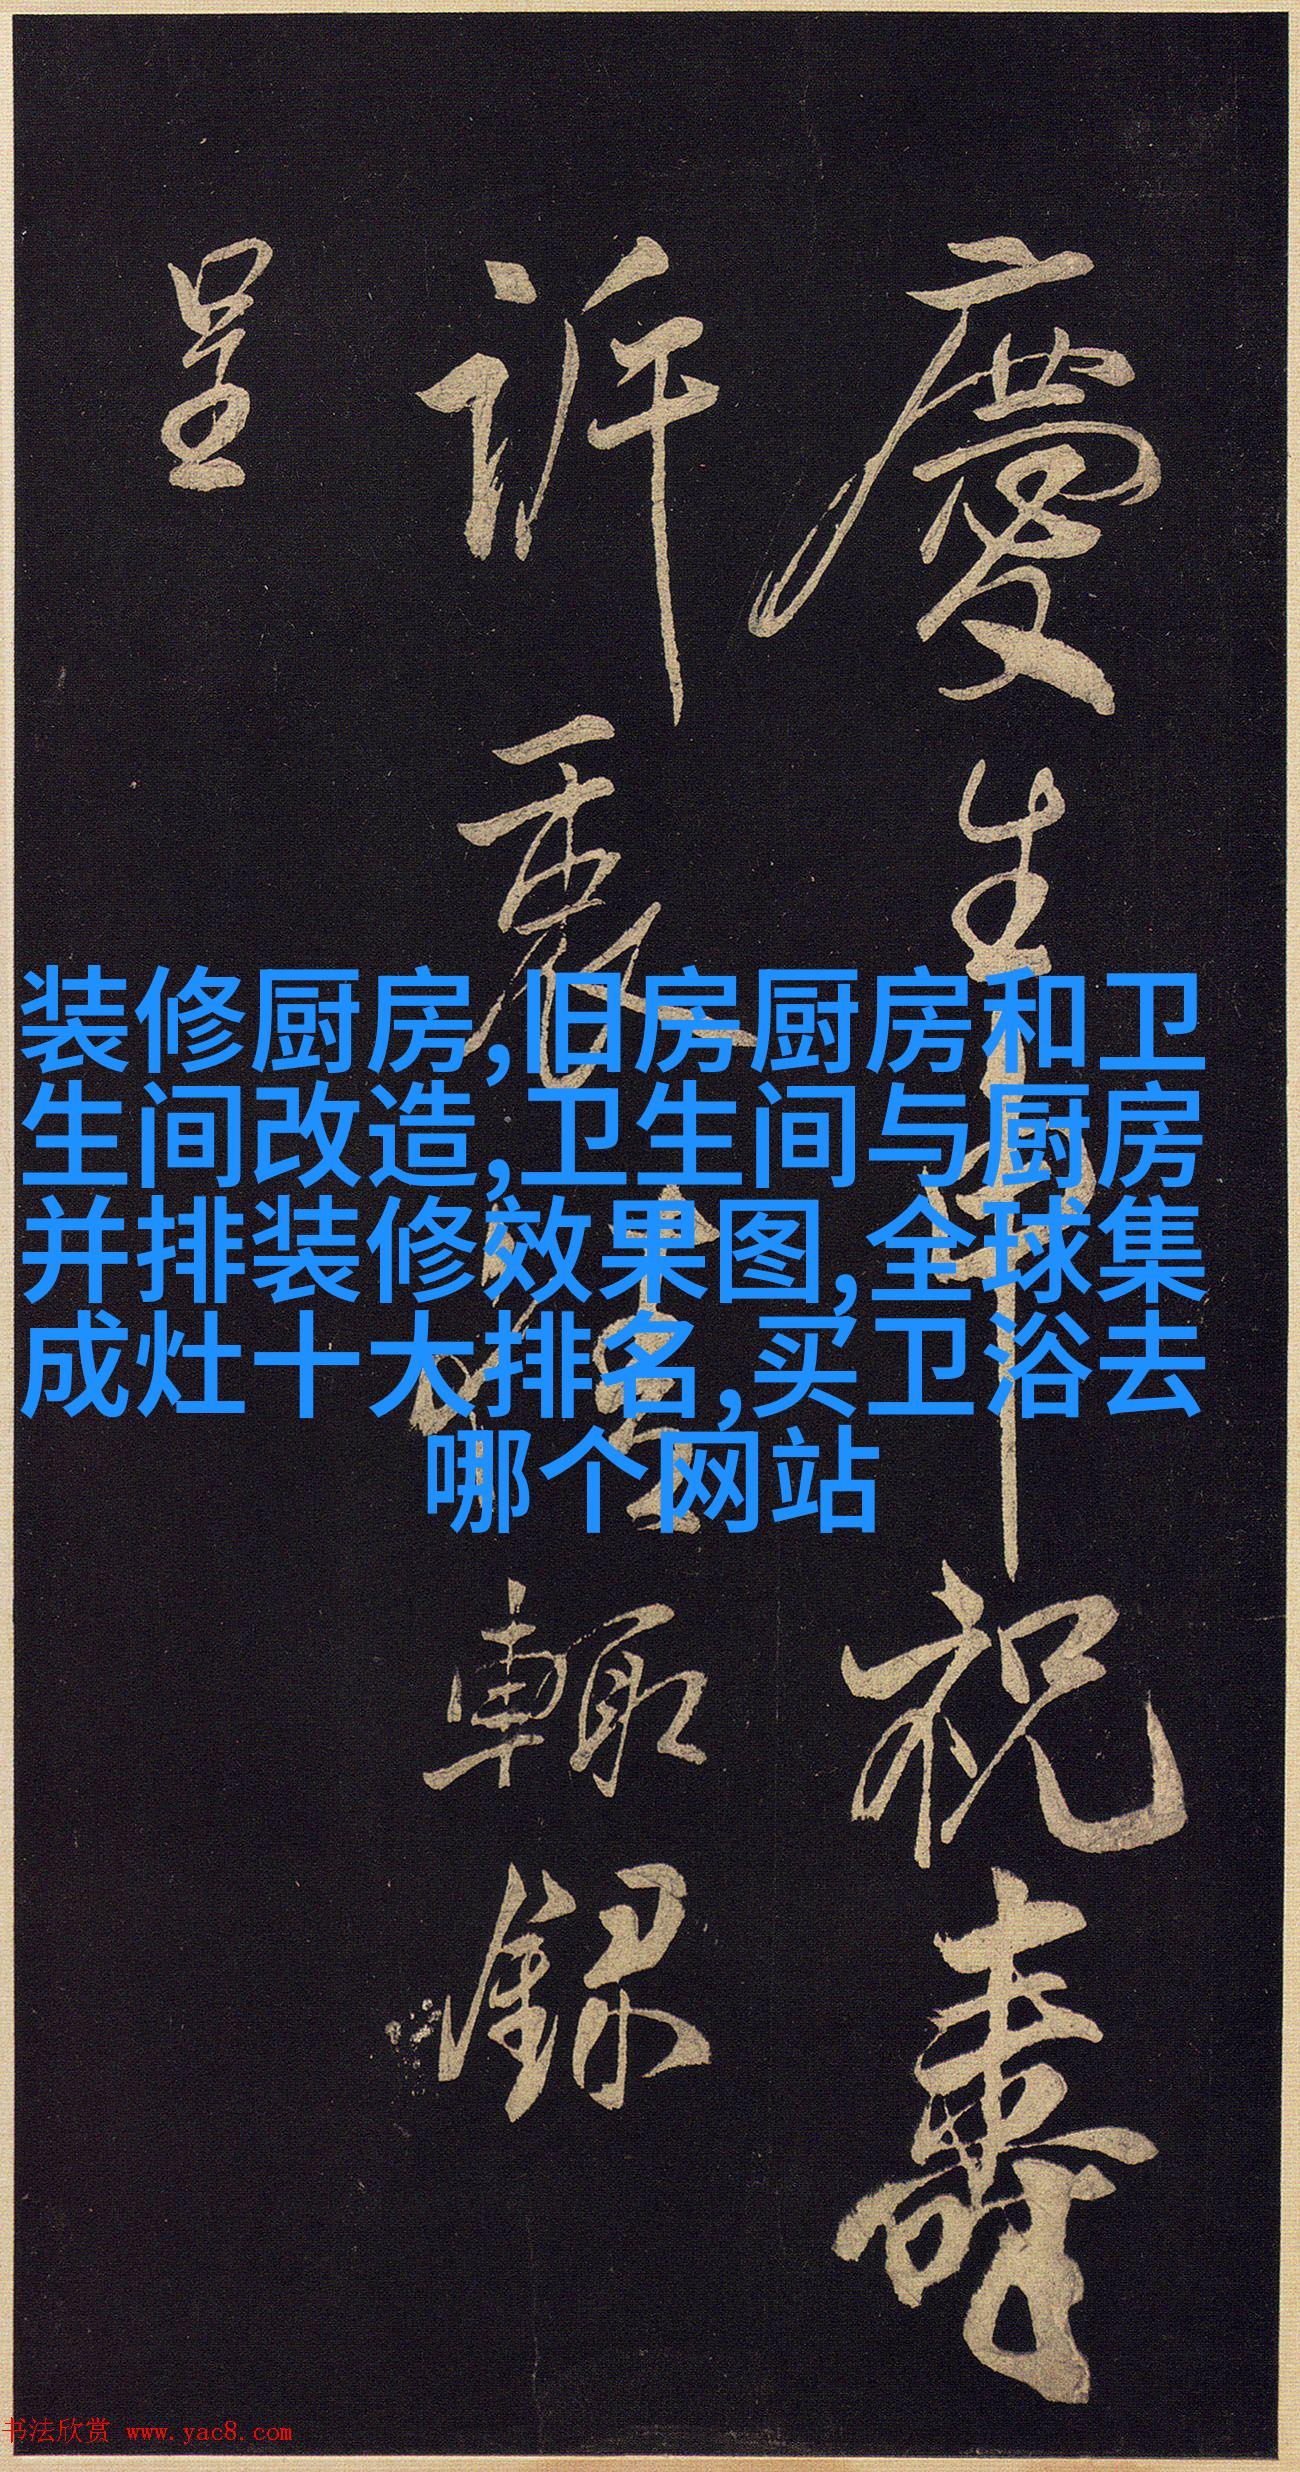 慶生申祝壽
訢衷
輙録
呈
装修厨房,旧房厨房和卫
生间改造,卫生间与厨房
并排装修效果图,全球集
成灶十大排名,买卫浴去
哪个网站
书法欣赏 www.yac8.com